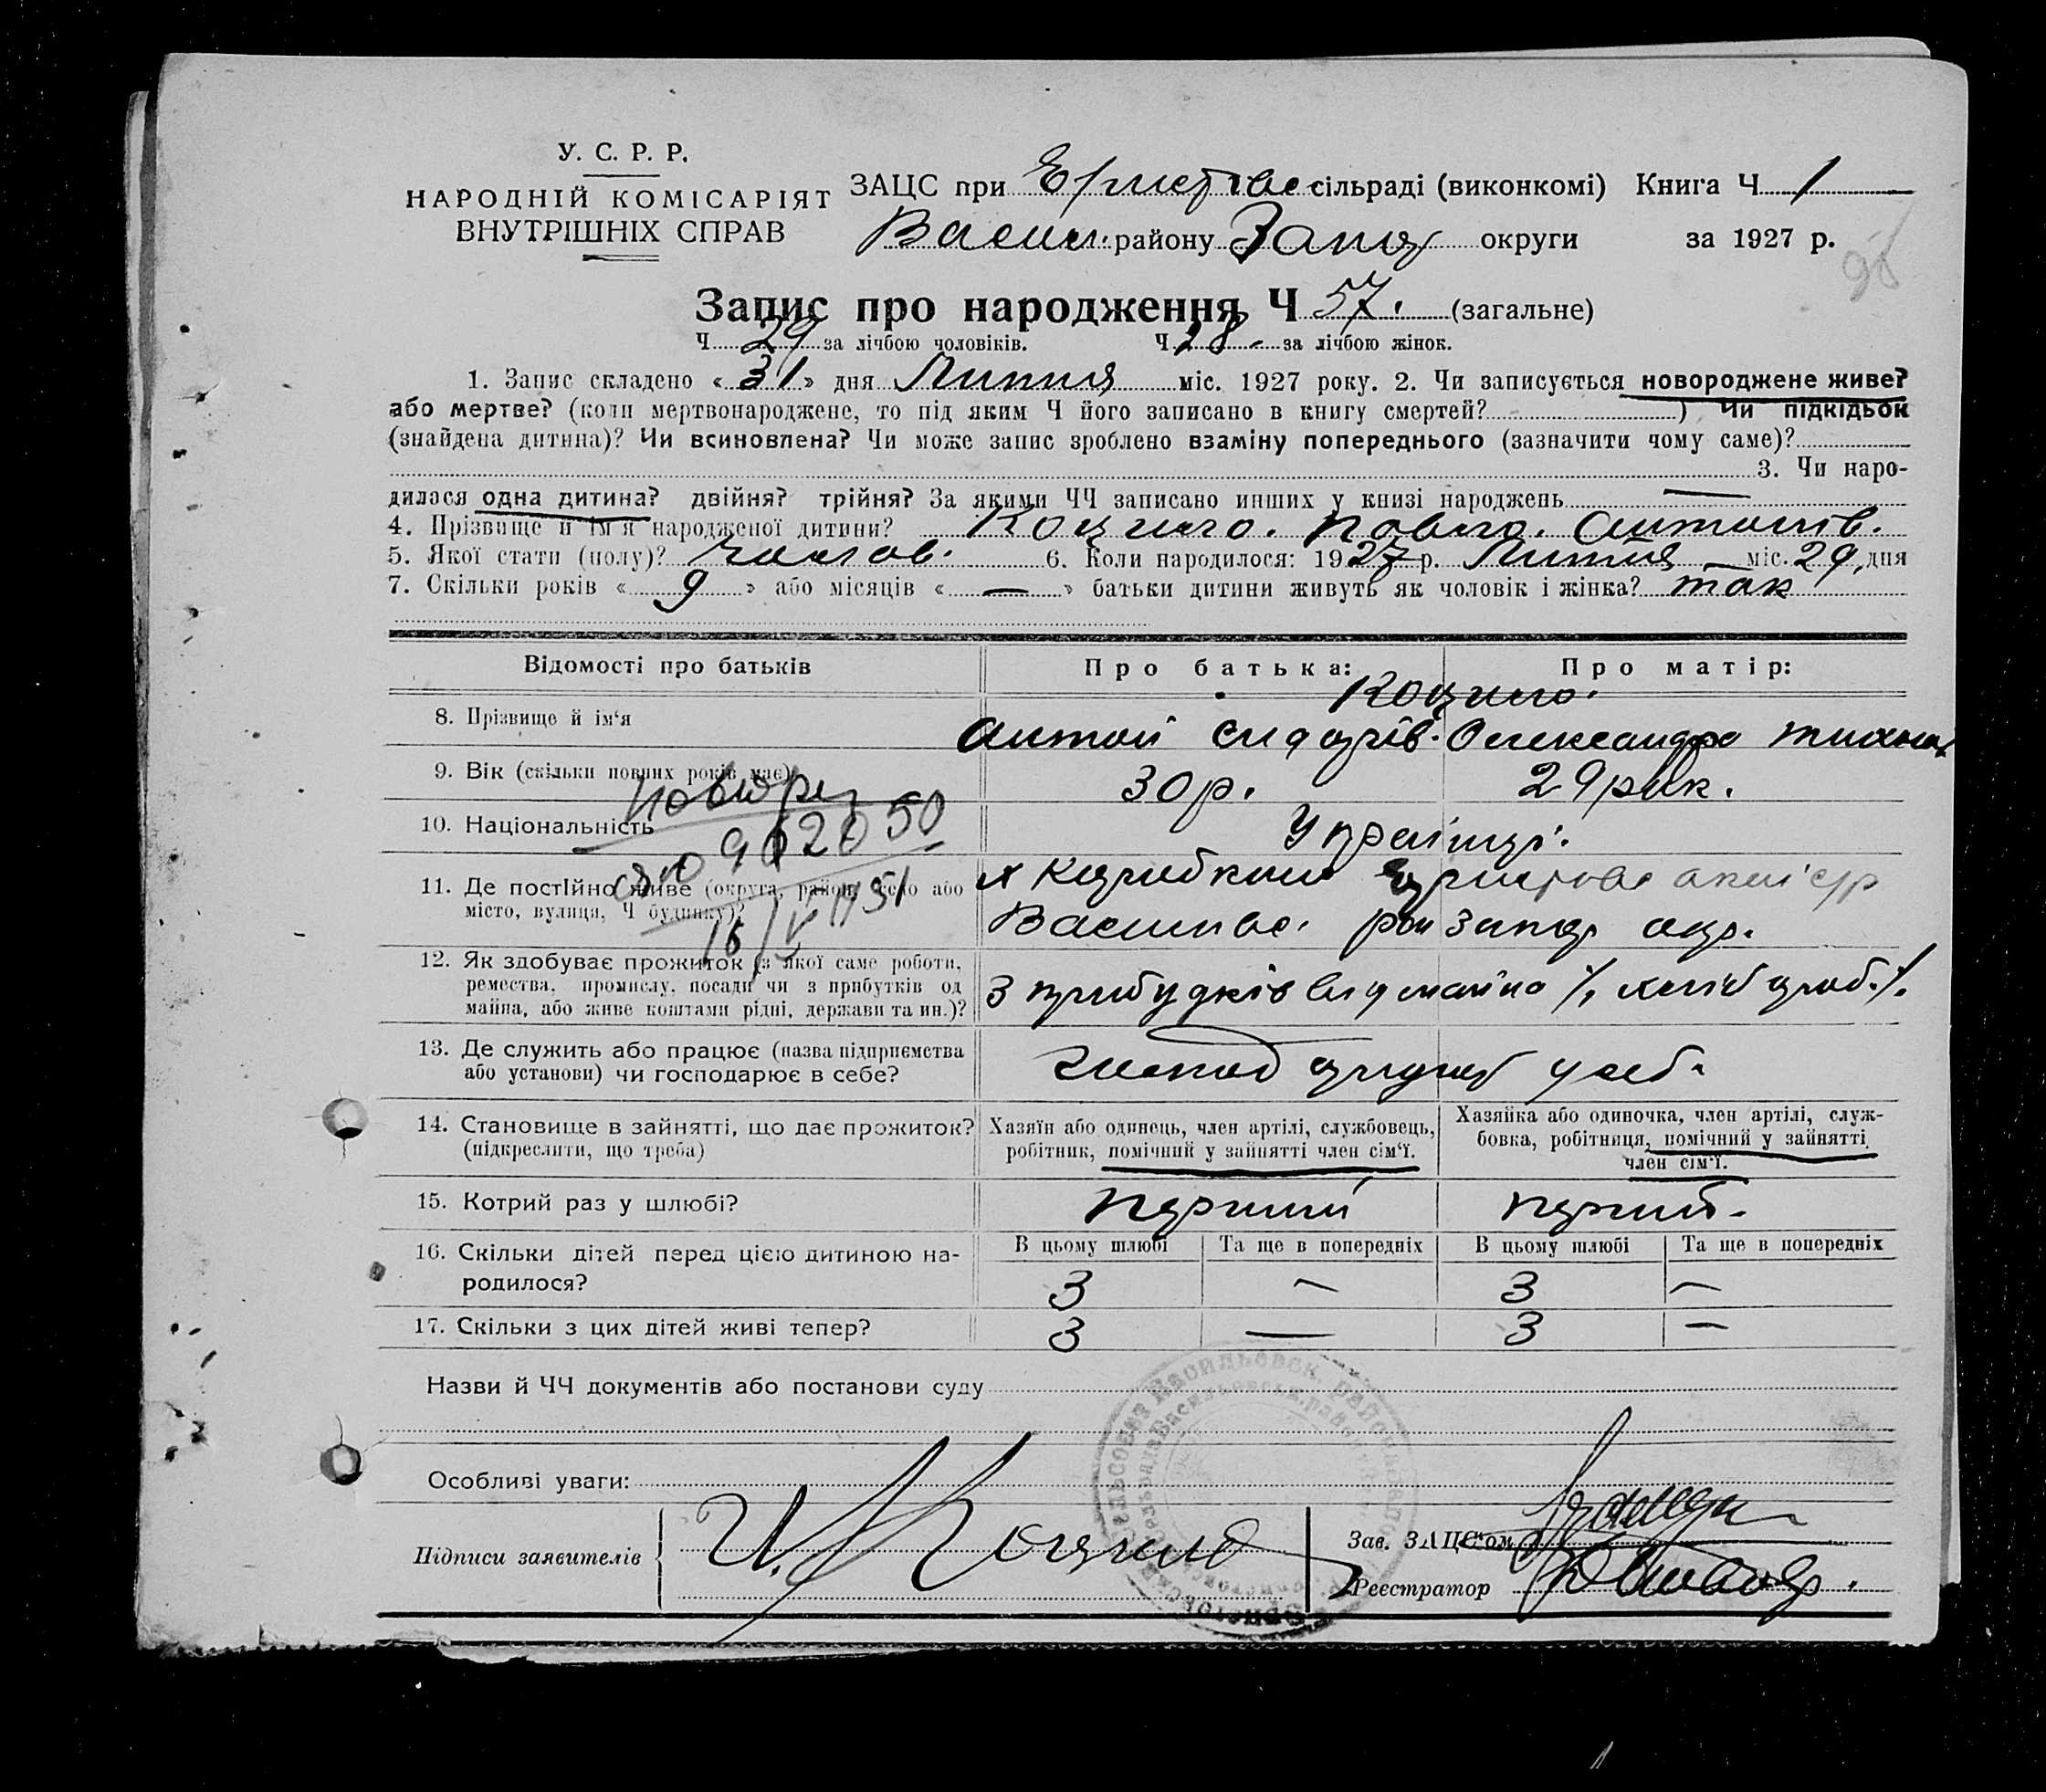 У. С. Р. Р.
НАРОДНІЙ КОМІСАРІЯТ
ВНУТРІШНІХ СПРАВ
ЗАЦС при сільраді (виконкомі) Книга Ч 1
Васил. району Запор округи за 1927 р.
98
Запис про народження Ч 57. (загальне)
Ч 29 за лічбою чоловіків. Ч 28. за лічбою жінок.
1. Запис складено « 31 » дня Липня міс. 1927 року. 2. Чи записується новороджене живе?
або мертве? (коли мертвонароджене, то під яким Ч його записано в книгу смертей? ) Чи підкідьок
(знайдена дитина)? Чи всиновлена? Чи може запис зроблено взаміну попереднього (зазначити чому саме)?
3. Чи наро-
дилася одна дитина? двійня? трійня? За якими ЧЧ записано инших у книзі народжень —
4. Прізвище й ім'я народженої дитини? Павло. Антонів.
5. Якої стати (полу)? чолов. 6. Коли народилося: 1927 р. Липня міс. 29 дня
7. Скільки років « 9 » або місяців « — » батьки дитини живуть як чоловік і жінка? так
Відомості про батьків Про батька: Про матір:
8. Прізвище й ім'я
Антон Сидорів. Олександра
9. Вік (скільки повних років має) 30 р. 29 рік.
10. Національність Українці.
11. Де постійно живе (округа, район, село або
місто, вулиця, Ч будинку)?
12. Як здобуває прожиток (з якої саме роботи,
ремества, промислу, посади чи з прибутків од
майна, або живе коштами рідні, держави та ин.)?
З прибутків від майна
13. Де служить або працює (назва підприємства
або установи) чи господарює в себе?
14. Становище в зайнятті, що дає прожиток?
(підкреслити, що треба)
Хазяїн або одинець, член артілі, службовець,
робітник, помічний у зайнятті член сім'ї.
Хазяйка або одиночка, член артілі, служ-
бовка, робітниця, помічний у зайнятті
член сім'ї.
15. Котрий раз у шлюбі? перший перший.
16. Скільки дітей перед цією дитиною на-
родилося?
В цьому шлюбі Та ще в попередніх В цьому шлюбі Та ще в попередніх
3 — 3 —
17. Скільки з цих дітей живі тепер? 3 — 3 —
Назви й ЧЧ документів або постанови суду
Особливі уваги:
Підписи заявителів
Зав. ЗАЦС'ом
Реєстратор